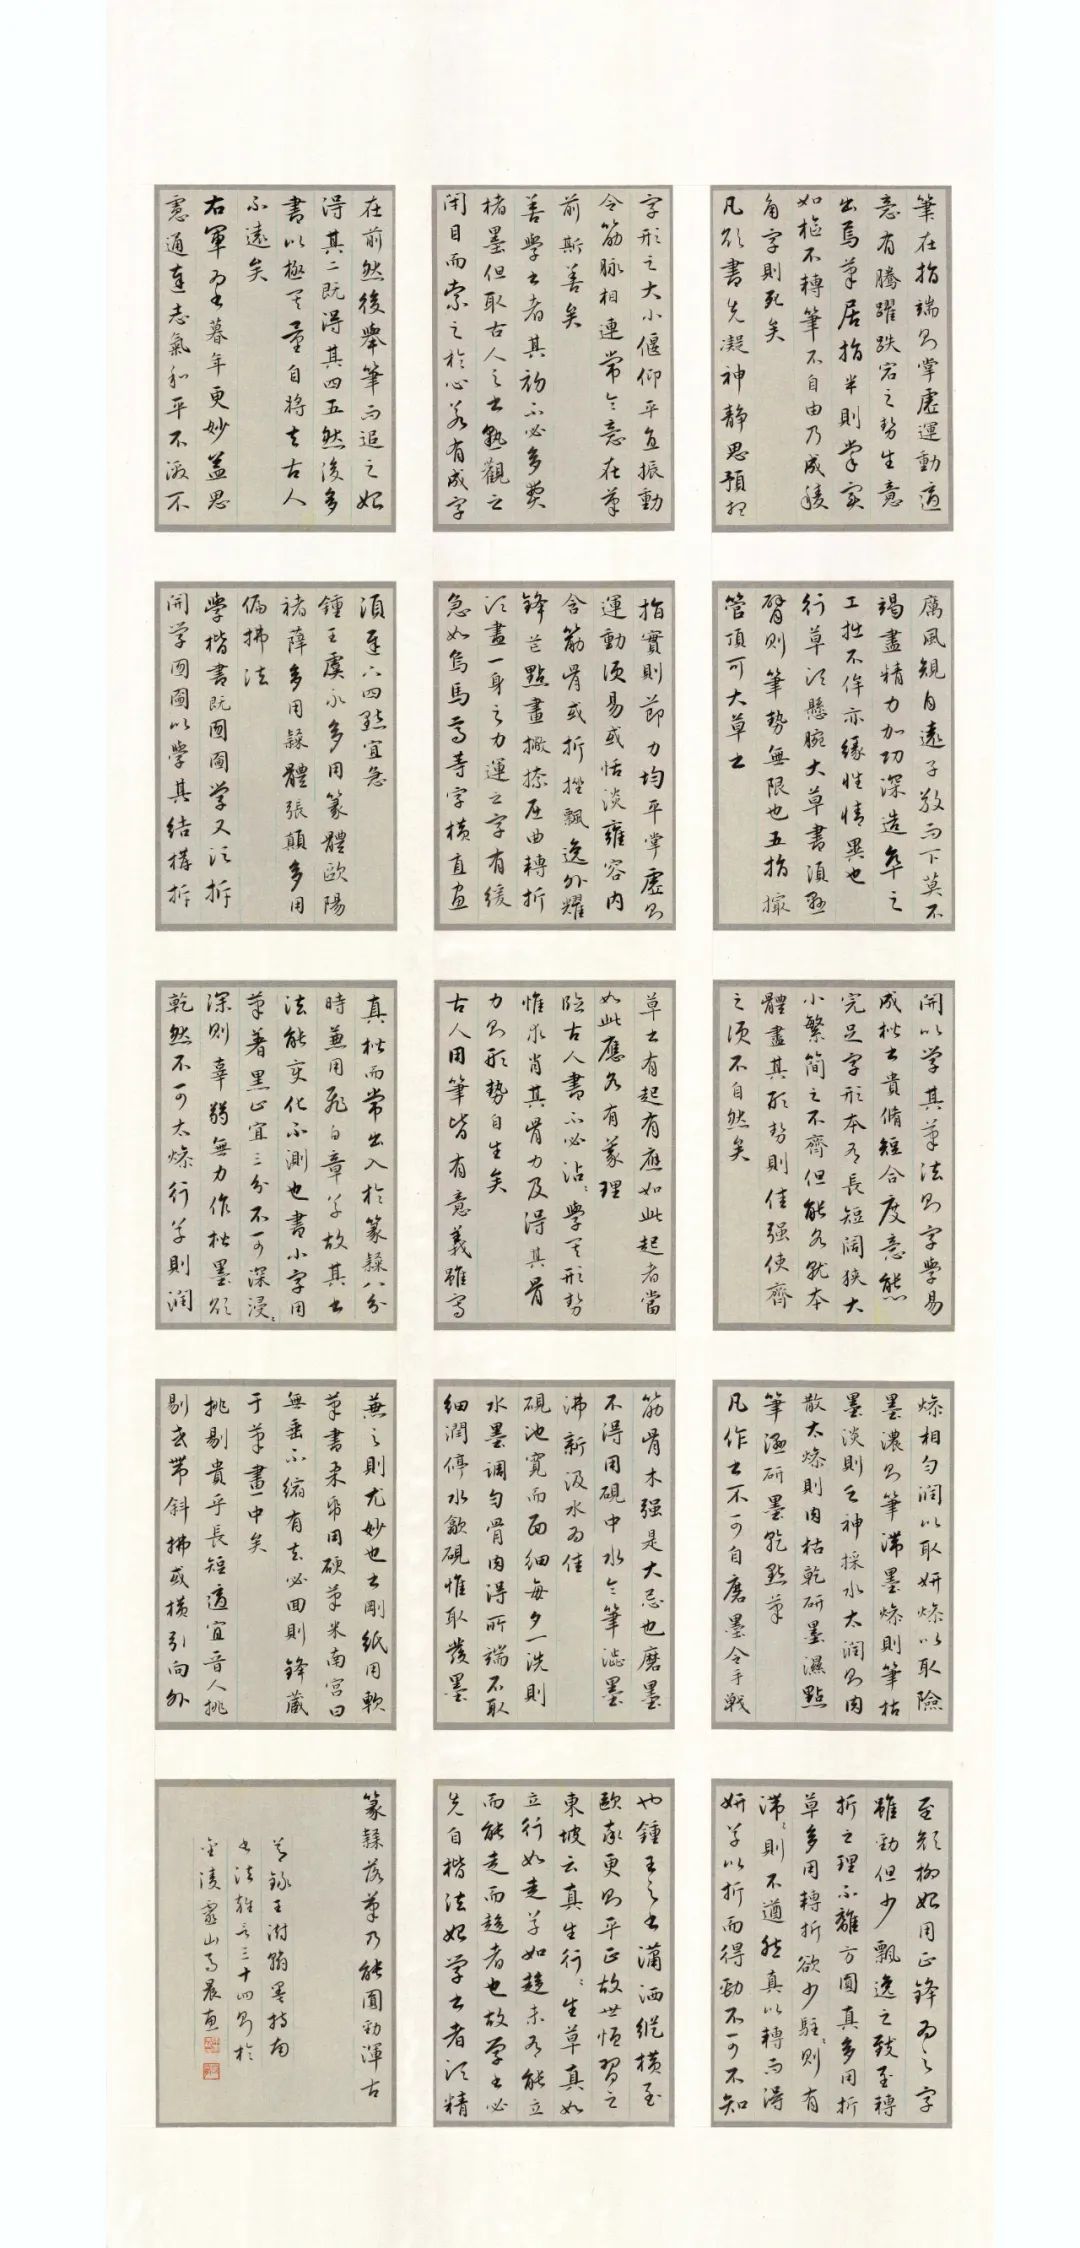 筆在指端則掌虛運動適
意有騰躍跌宕之勢生意
出焉筆居指半則掌實
如樞不轉筆不自由乃成稜
角字則死矣
凡欲書先凝神靜思預想
字形之大小偃仰平直振動
令筋脉相連常令意在筆
前斯善矣
善學書者其初不必多費
楮墨但取古人之書熟觀之
閉目而索之於心若有成字
在前然後舉筆而追之始
得其二既得其四五然後多
書以極其量自將去古人
不遠矣
右軍為書暮年更妙蓋思
慮通達志氣和平不激不
厲風規自遠子敬而下莫不
竭盡精力加功深造率之
工拙不侔亦緣性情異也
行草須懸腕大草書須懸
臂則筆勢無限也五指撮
管頂可大草書
指實則節力均平掌虛則
運動須易或恬淡雍容內
含筋骨或折挫飄逸外耀
鋒芒點畫撇捺屈曲轉折
須盡一身之力運之字有緩
急如烏馬焉等字橫直畫
須遲八四點宜急
鍾王虞永多用篆體歐陽
褚薛多用隸體張顛多用
偏拂法
學楷書既囫圇學又須拆
開學囫圇以學其結構拆
開以學其筆法則字學易
成楷書貴脩短合度意態
完足字形本有長短闊狹大
小繁簡之不齊但能各就本
體盡其形勢則佳强使齊
之須不自然矣
草書有起有應如此起者當
如此應各有義理
臨古人書不必沾沾學其形勢
惟求肖其骨力及得其骨
力則形勢自生矣
古人用筆皆有意義雖寫
真楷而常出入於篆隸八分
時兼用飛白章草故其書
法能變化不測也書小字用
筆著墨止宜三分不可深浸浸
深則辜弱無力作楷墨欲
乾然不可太燥行草則潤
燥相勻潤以取妍燥以取險
墨濃則筆滯墨燥則筆枯
墨淡則乏神採水太潤則肉
散太燥則肉枯乾研墨濕點
筆濕研墨乾點筆
凡作書不可自磨墨令手戰
筋骨木强是大忌也磨墨
不得用硯中水令筆澁墨
沸新汲水為佳
硯池寬而面細每夕一洗則
水墨調勻骨肉得所端不取
細潤停水歙硯惟取發墨
兼之則尤妙也書剛紙用軟
筆書柔帋用硬筆米南宮曰
無垂不縮有去必回則鋒藏
于筆畫中矣
挑剔貴乎長短適宜晉人挑
剔去帶斜拂或橫引向外
至顏柳始用正鋒為之字
雖勁但少飄逸之致至轉
折之理不離方圓真多用折
草多用轉折欲少駐駐則有
滯滯則不遒然真以轉而得
妍草以折而得勁不可不知
也鍾王之書瀟洒縱橫至
歐家更則平正故世恒習之
東坡云真生行行生草真如
立行如走草如趨未有能立
而能走而趨者也故學書必
先自楷法始學書者須精
篆隸落筆乃能圓勁渾古
右錄王澍翰墨指南
書法雜言三十四則於
金陵